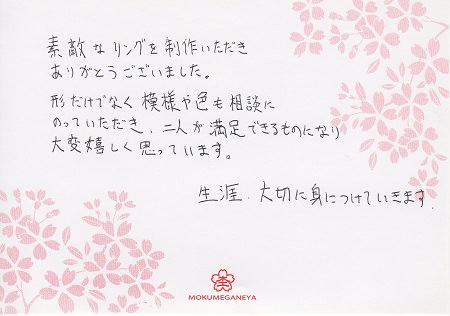 素敵なリングを制作いただき
ありがとうございました。
形だけでなく模様や色も相談に
のっていただき、二人が満足できるものになり
大変嬉しく思っています。
生涯、大切に身につけていきます.
MOKUMEGANEYA